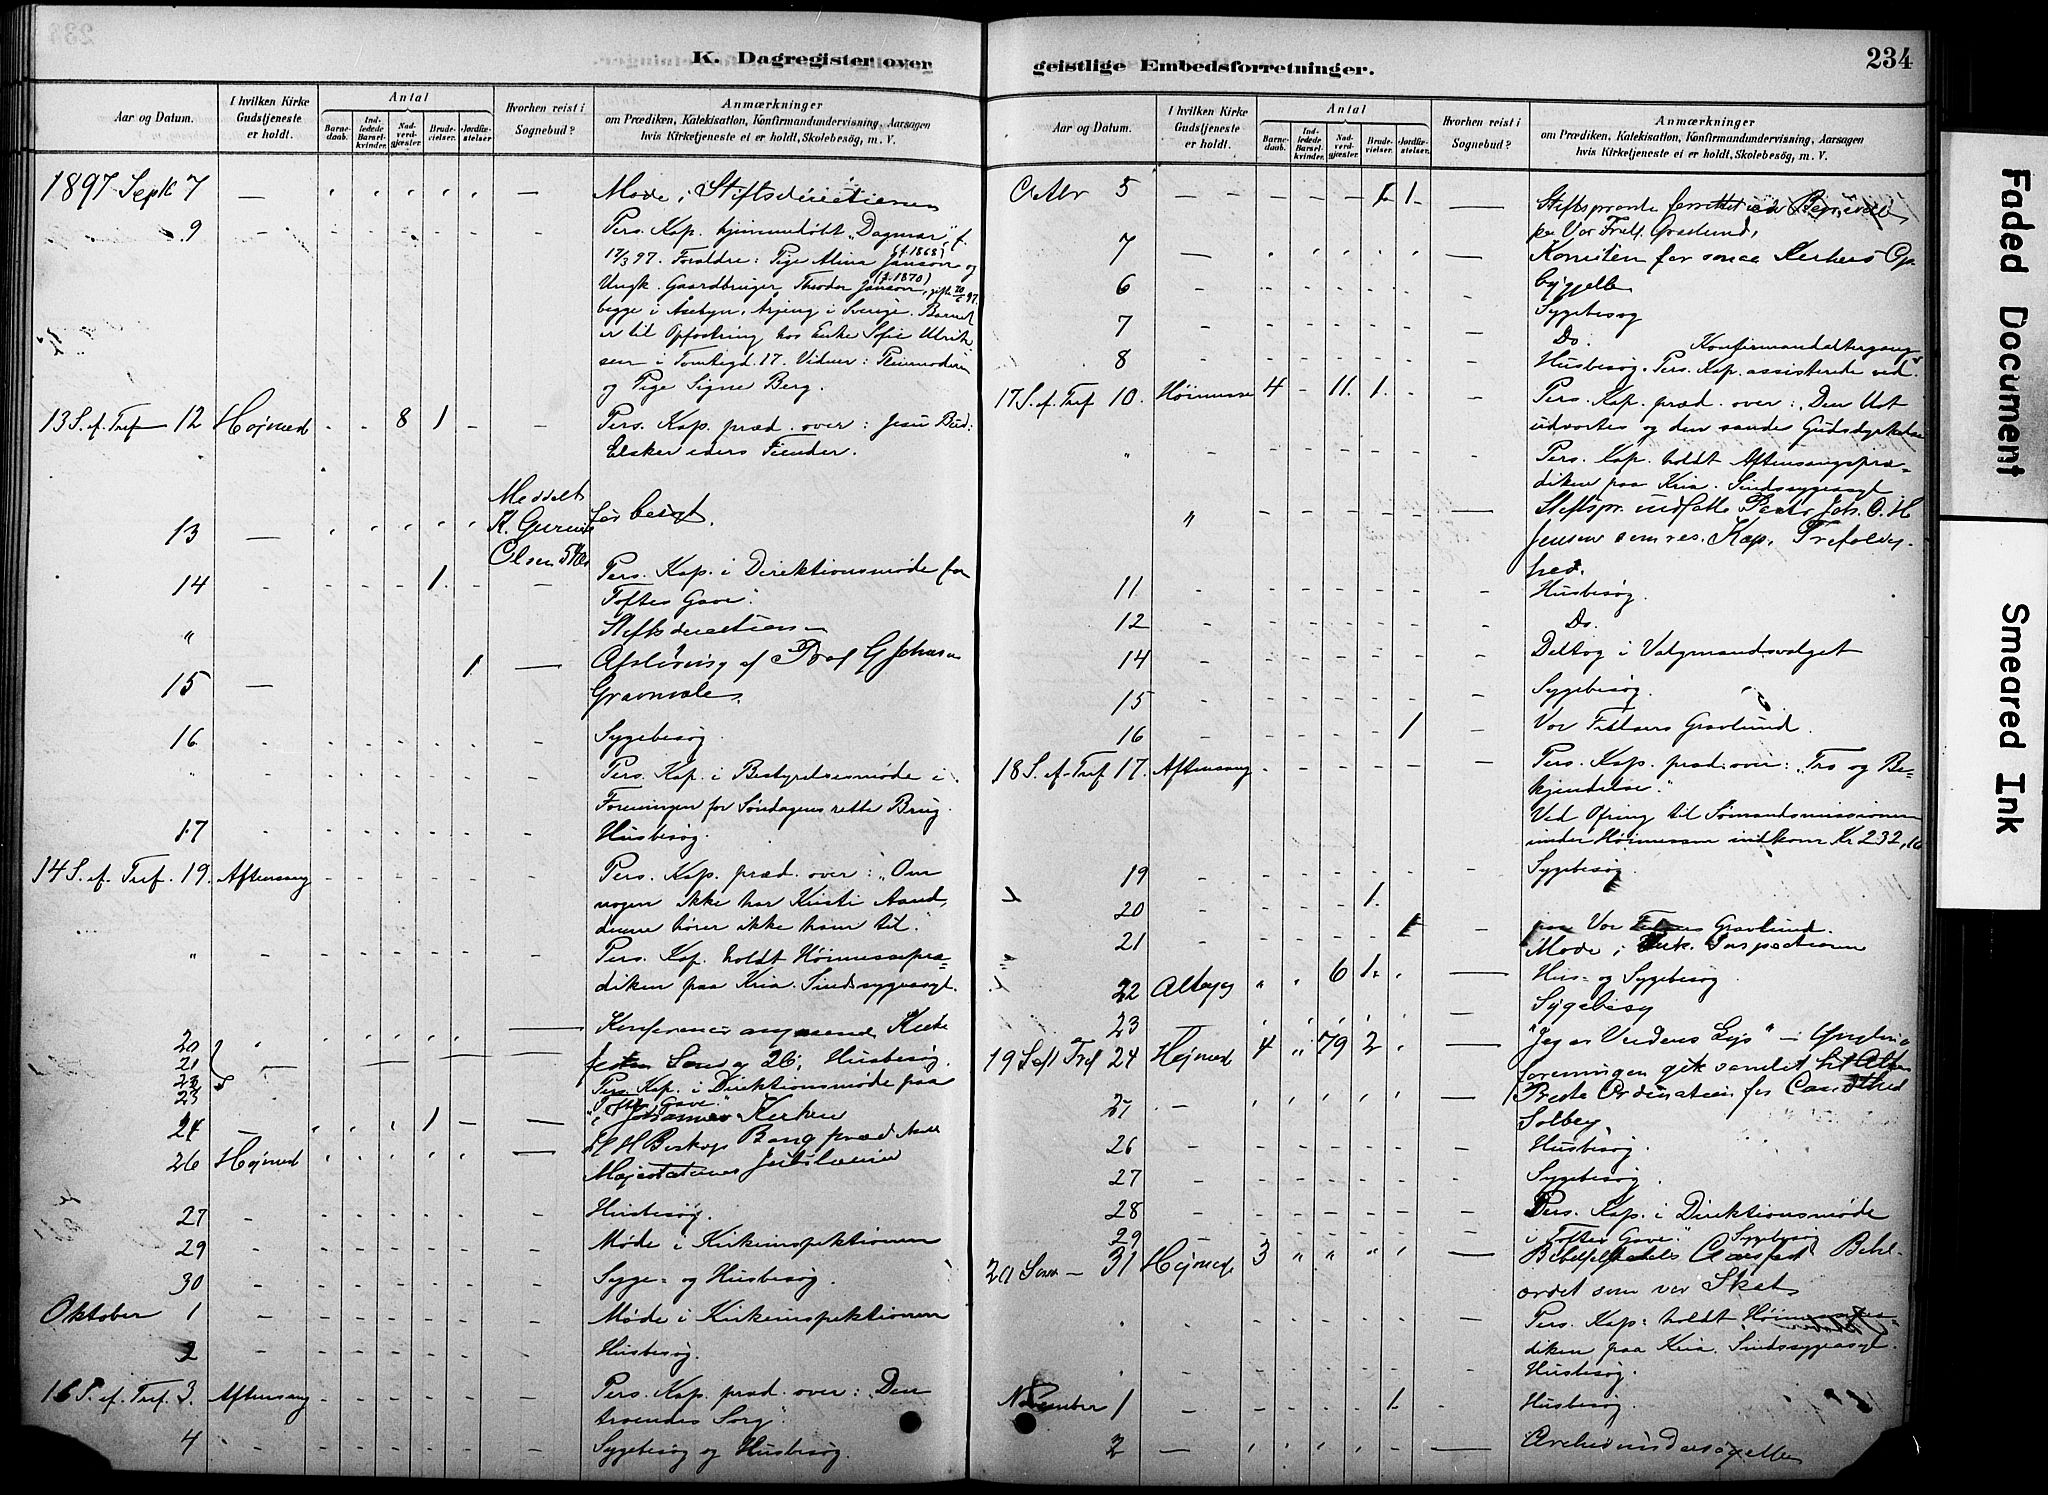 K. Dagregister over
Aar og Datum.
I hvilken Kirke Gudstjeneste er holdt.
Antal
Barnedaab.
Indledede Barselkvinder.
Nadverdgjæster.
Brudevielser.
Jordfæstelser.
Hvorhen reist i Sognebud?
Anmærkninger
om Prædiken, Katekisation, Konfirmandundervisning, Aarsagen
hvis Kirketjeneste ei er holdt, Skolebesög, m. V.
1897 Septb 7 Møde i Stiftsdirectionen
9 Pers. Kap. hjemmedøbt „Dagmar", f.
17/3 97. Forældre: Pige Alma Janson (f. 1868) og
Ungk. Gaardbruger Theodor Janson (f. 1870), gift
begge i Årjeng i Sverige. Barnet
er til Opfostring hos Enke Sofie Ulrik-
sen i 17. Vidner: Pleiemoderen
og Pige Signe Berg.
13 S. ef. Tref 12 Højmed 8 1 Pers. Kap. præd. over: Jesu Bud:
Elsker eders Fiender.
Meddelt
13 K.
Olsen
14 1 Pers. Kap. i Direktionsmøde for
Toftes Gave".
" Stiftsdirectionen
15 1 Afsløring af Prof G Johnson
Gravmæle.
16 Sygebesøg.
" Pers. Kap. i Bestyrelsesmøde i
Foreningen for Søndagens rette Brug.
17 Husbesøg.
14 S. ef. Tref. 19. Aftensang Pers. Kap. præd. over: „Om
nogen ikke har Kristi Aand,
denne hører ikke ham til".
" Pers. Kap. holdt Høimessepræ-
diken paa Kria. Sindssygeasyl.
20 Konference Kirke
21 26. Husbesøg.
22 Pers. Kap. i Direktionsmøde paa
23 „Toftes Gave."
24 1 i Johannes Kirken
26 Højmed Biskop Bang præd
Majestætens Jubilæum
27 Husbesøg.
29 Møde i Kirkeinspektionen
30 Syge- og Husbesøg.
Oktober 1 Møde i Kirkeinspektionen
2 Husbesøg.
16 S. ef. Tref. 3. Aftensang Pers. Kap. præd. over: Den
troendes Sorg".
4 Sygebesøg og Husbesøg.
geistlige Embedsforretninger.
234
Aar og Datum.
I hvilken Kirke Gudstjeneste er holdt.
Antal
Barnedaab.
Indledede Barselkvinder.
Nadverdgjæster.
Brudevielser.
Jordfæstelser.
Hvorhen reist i Sognebud?
Anmærkninger
om Prædiken, Katekisation, Konfirmandundervisning, Aarsagen
hvis Kirketjeneste ei er holdt, Skolebesög, m. V.
Octbr 5 1 1 Stiftsprovste forrettet
paa Vor Frels. Gravlund.
7 Komiteen for Kirkers Op-
byggelse
6 Sygebesøg
7 Do.
8 Husbesøg. Pers. Kap. assisterede ved Konfirmandaltergang
17 S. ef. Tref 10. Høimesse 4 11. 1. Pers. Kap. præd. over: „Den
udvortes og den sande Gudsdyrkelse
" Pers. Kap. holdt Aftensangspræ-
diken paa Kria. Sindssygeasyl
" Stiftspr. indsatte Pastor Joh. O. H
Jensen som res. Kap.
11 Husbesøg.
12 Do.
14 Deltog i Valgmandsvalget
15 Sygebesøg.
16 1 Vor Frelsers Gravlund.
18 S. ef. Tref 17. Aftensang Pers. Kap. præd. over: „Tro og Be-
kjendelse."
Ved Ofring til Sømandsmissionen
under Høimessen indkom Kr 232,16
19 Sygebesøg
20 1.
21 1 paa Vor Frelsers Gravlund.
Møde i Kirk. Inspectionen
22 Altergg 6 1. Hus- og Sygebesøg
23 Sygebesøg
19 S eft Tref 24 Højmed 4 " 79 2 „Jeg er Verdens Lys" — i Ynglinge-
foreningen gik samlet til Alters
27 Ordination for Cand
Solberg
26 Husbesøg.
27 Sygebesøg.
28 Pers. Kap. i Direktionsmøde
29 i Toftes Gave". Sygebesøg
20 Sønn 31 Højmed 3 " " " Bibel-
ordet som vor Skat
" Pers. Kap. holdt Høimessepræ-
diken paa Kria. Sindssygeasyl.
" Husbesøg.
November 1 1. Husbesøg.
2
Faded Document
Smeared Ink